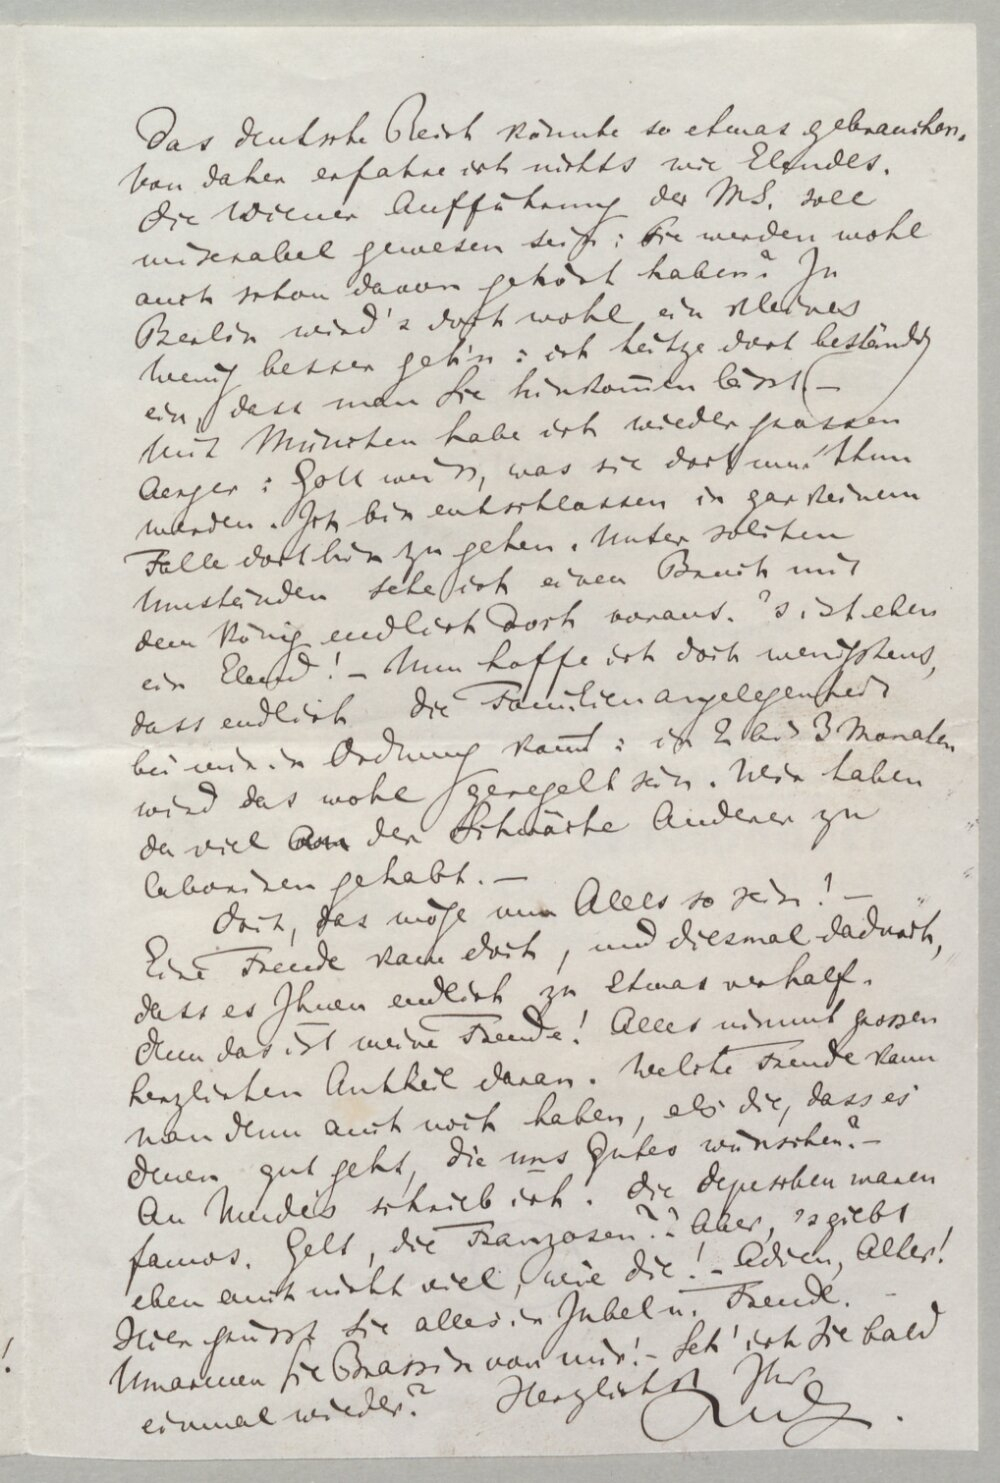 Das deutsche Reich könnte so etwas gebrauchen.
Von daher erfahre ich nichts wie Elendes.
Die Wiener Aufführung der MS. soll
miserabel gewesen sein: Sie werden wohl
auch schon davon gehört haben? In
Berlin wird's doch wohl ein kleines
wenig besser geh'n: ich heitze dort beständig
ein, dass man Sie hinkommen lässt. –
Mit München habe ich wieder grossen
Aerger: Gott weiss, was sie dort nun thun
werden. Ich bin entschlossen in gar keinem
Falle dorthin zu gehen. Unter solchen
Umständen sehe ich einen Bruch mit
dem König endlich doch voraus. 's ist eben
ein Elend! – Nun hoffe ich doch wenigstens,
dass endlich die Familienangelegenheit
bei mir in Ordnung kom̅t: in 2 bis 3 Monaten
wird das wohl geregelt sein. Wir haben
da viel an der Schwäche Anderer zu
laboriren gehabt. –
Doch, das möge nun Alles so sein! –
Eine Freude kam doch, und diesmal dadurch,
dass es Ihnen endlich zu Etwas verhalf.
Denn das ist meine Freude! Alles nimmt grossen
herzlichen Antheil daran. Welche Freude kann
man denn auch noch haben, als die, dass es
denen gut geht, die uns Gutes wünschen? –
An Mendès schrieb ich. Die Depeschen waren
famos. Gelt, die Franzosen?? Aber, 's giebt
eben auch nicht viel, wie die! – Adieu, Alter!
Hier grüsst Sie alles in Jubel u. Freude. –
Umarmen Sie Brassin von mir! – Seh' ich Sie bald
einmal wieder? Herzlichst Ihr